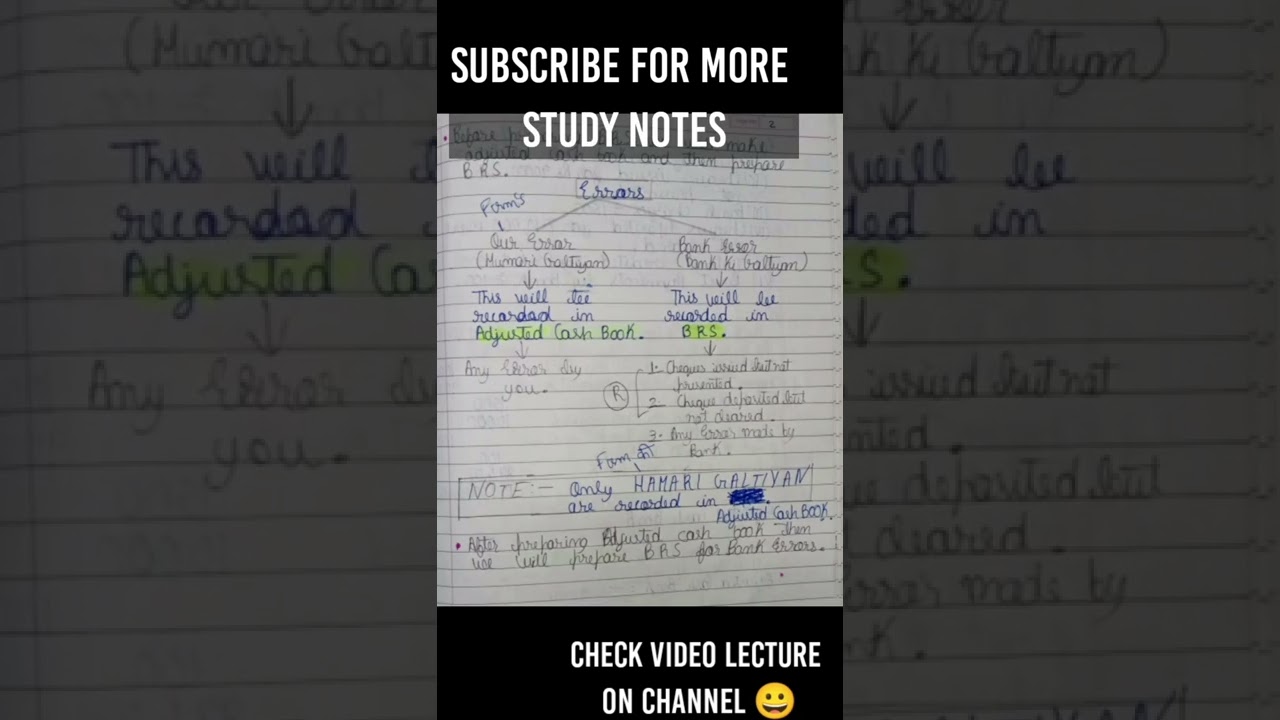 SUBSCRIBE FOR MORE
STUDY NOTES
2
adjusted cash book and then prepare
B.R.S.
Errors
Our Error
(Humari Galtiyan)
This will be
recorded in
Adjusted Cash Book.
Any Error by
you.
Bank Error
(Bank Ki Galtiyan)
This will be
recorded in
B.R.S.
R
1. Cheques issued but not
presented.
2. Cheque deposited but
not cleared.
3. Any Error made by
Bank.
NOTE:- Only HAMARI GALTIYAN
are recorded in
Adjusted Cash BOOK.
• After preparing Adjusted cash book then
we will prepare BRS for Bank Errors.
CHECK VIDEO LECTURE
ON CHANNEL 😀